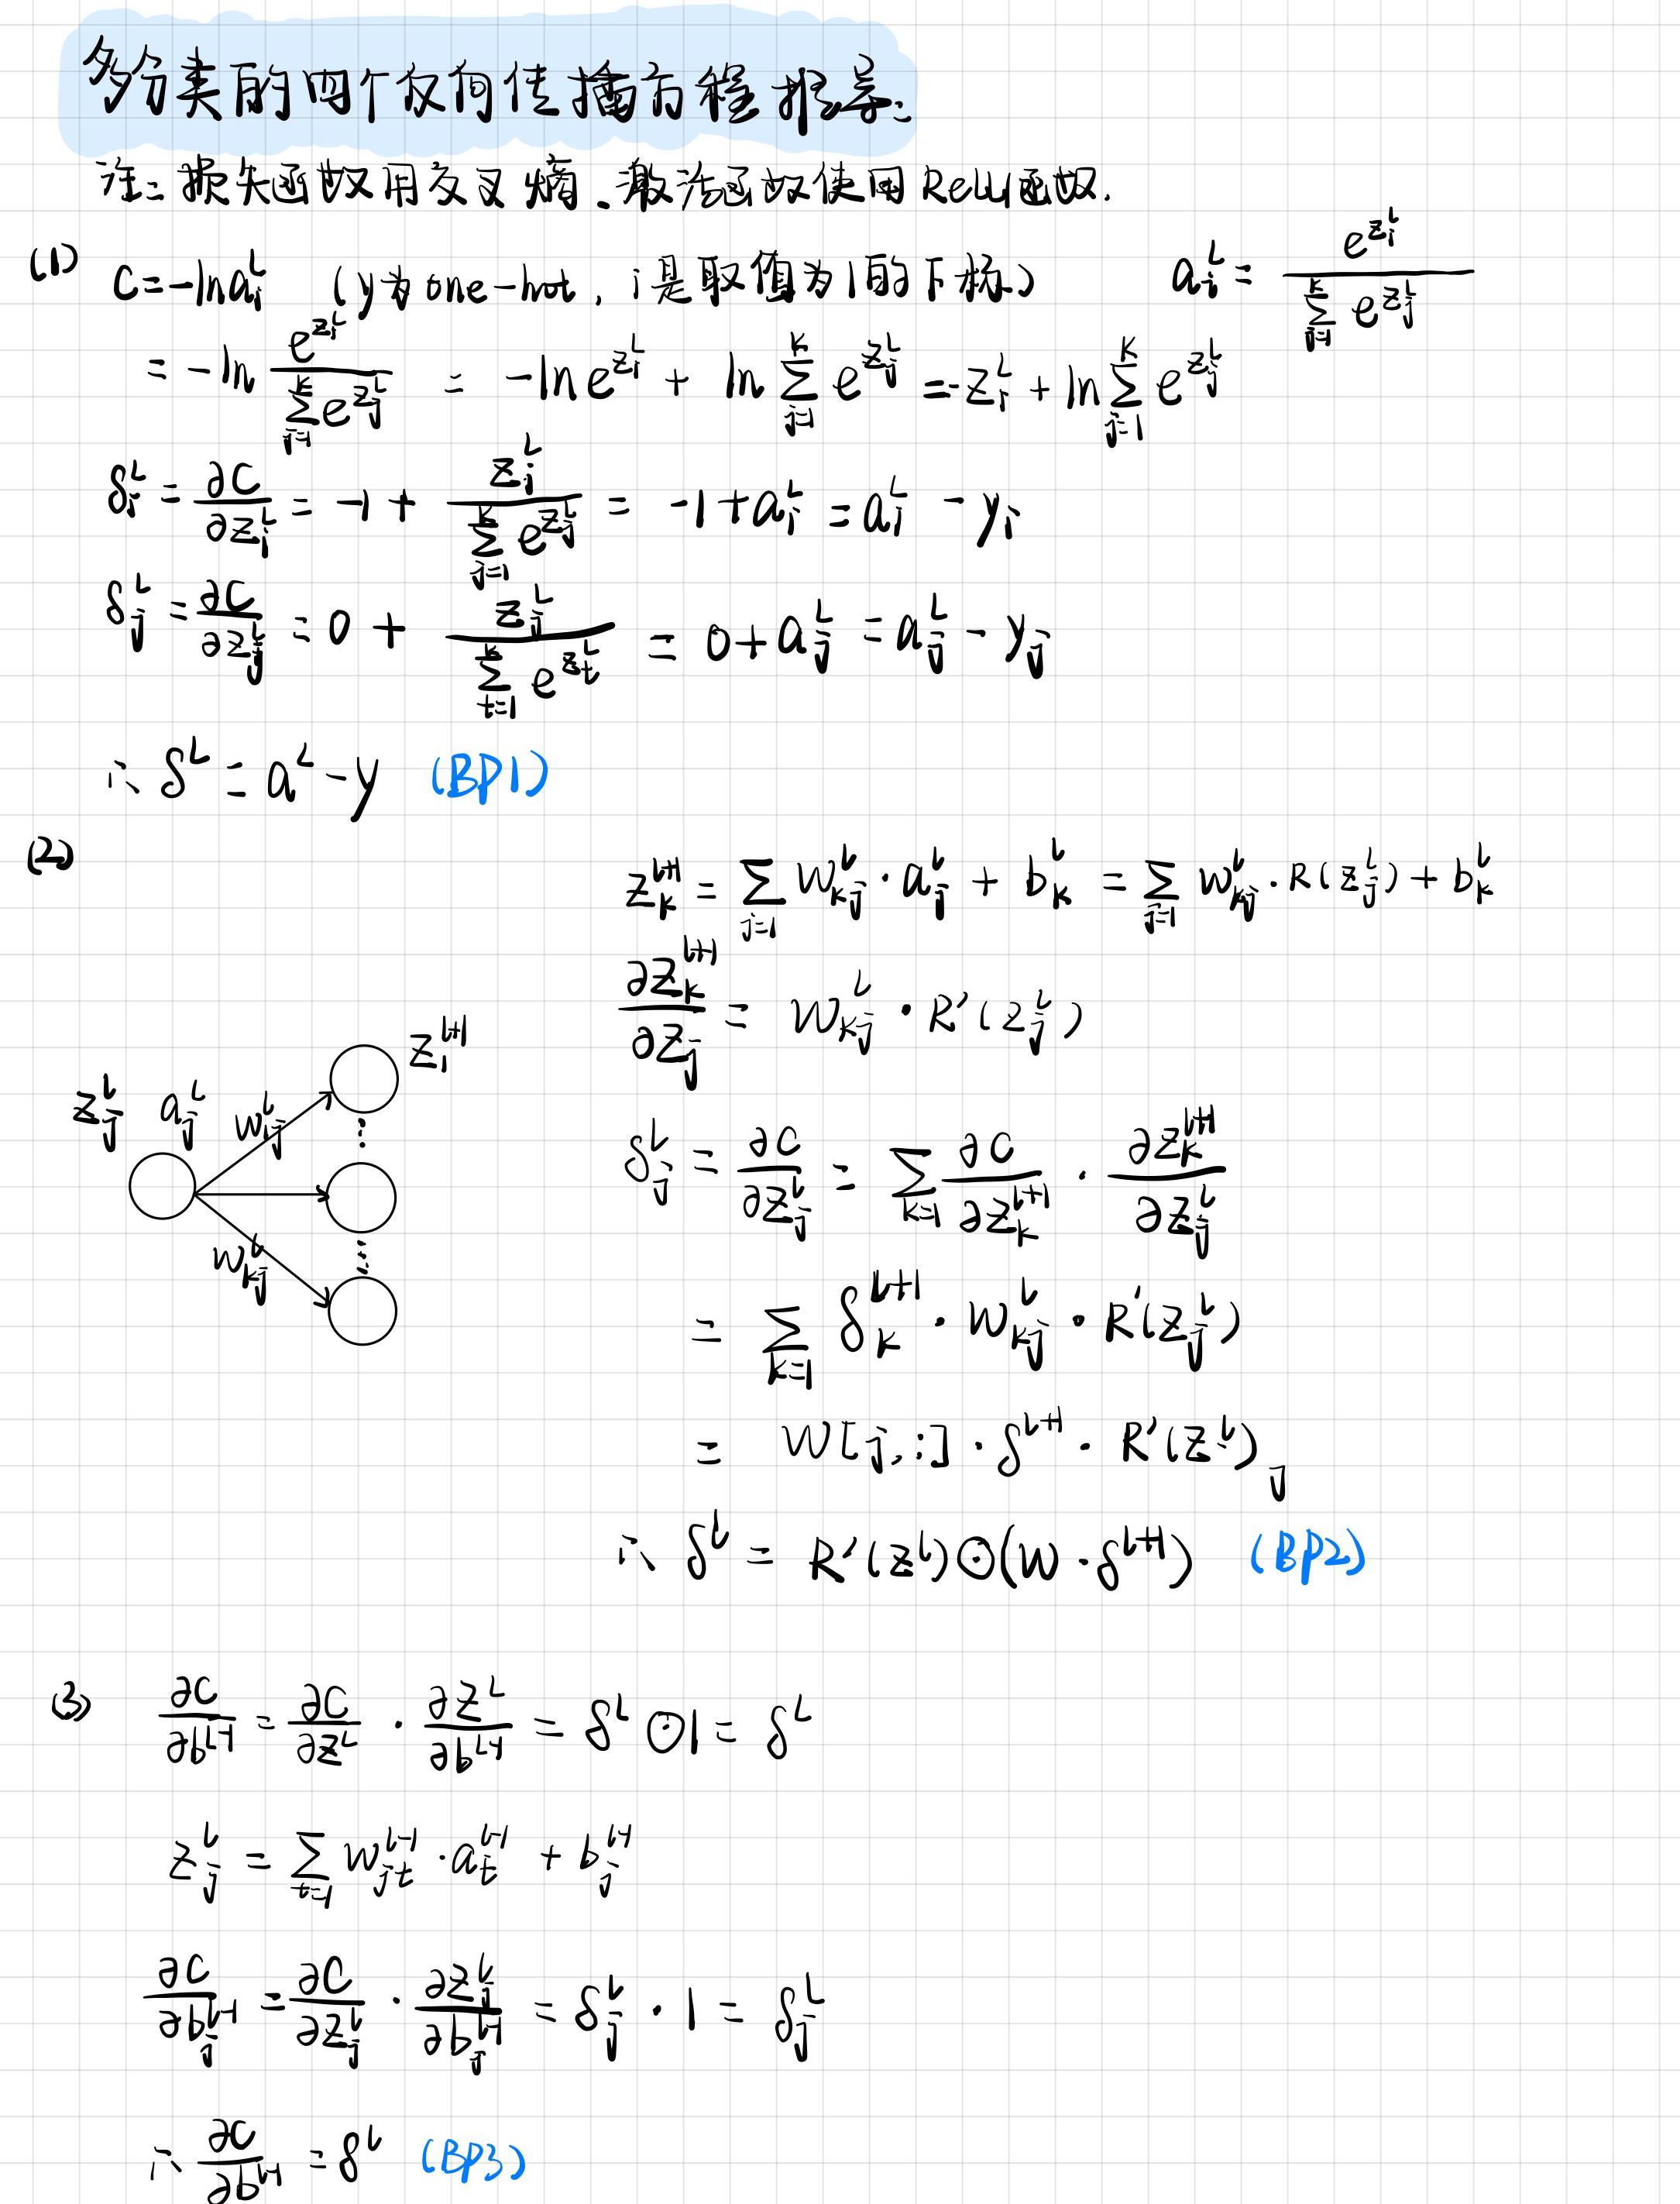 多分类的四个反向传播方程推导:
注: 损失函数用交叉熵.激活函数使用Relu函数.
(1) C=-lna_i^L (y为one-hot, i是取值为1的下标) a_i^L = e^{z_i^L} / \sum_{j=1}^{k} e^{z_j^L}
= -ln e^{z_i^L} / \sum_{j=1}^{k} e^{z_j^L} = -ln e^{z_i^L} + ln \sum_{j=1}^{k} e^{z_j^L} = -z_i^L + ln \sum_{j=1}^{k} e^{z_j^L}
δ_i^L = ∂C/∂z_i^L = -1 + z_i^L / \sum_{j=1}^{k} e^{z_j^L} = -1+a_i^L = a_i^L - y_i
δ_j^L = ∂C/∂z_j^L = 0 + z_j^L / \sum_{t=1}^{k} e^{z_t^L} = 0+a_j^L = a_j^L - y_j
∴ δ^L = a^L - y (BP1)
(2)
z_k^{l+1} = \sum_{j=1} w_{kj}^l · a_j^l + b_k^l = \sum_{j=1} w_{kj}^l · R(z_j^l) + b_k^l
∂z_k^{l+1}/∂z_j = w_{kj}^l · R'(z_j^l)
z_j^l a_j^l w_{1j}^l z_1^{l+1}
w_{kj}^l
δ_j^l = ∂C/∂z_j^l = \sum_{k=1} ∂C/∂z_k^{l+1} · ∂z_k^{l+1}/∂z_j^l
= \sum_{k=1} δ_k^{l+1} · w_{kj}^l · R'(z_j^l)
= W[j,:] · δ^{l+1} · R'(z^l)_j
∴ δ^l = R'(z^l)⊙(W·δ^{l+1}) (BP2)
(3) ∂C/∂b^{L-1} = ∂C/∂z^L · ∂z^L/∂b^{L-1} = δ^L ⊙1 = δ^L
z_j^l = \sum_{t=1} w_{jt}^{l-1} · a_t^{l-1} + b_j^{l-1}
∂C/∂b_j^{l-1} = ∂C/∂z_j^l · ∂z_j^l/∂b_j^{l-1} = δ_j^l · 1 = δ_j^l
∴ ∂C/∂b^{l-1} = δ^l (BP3)